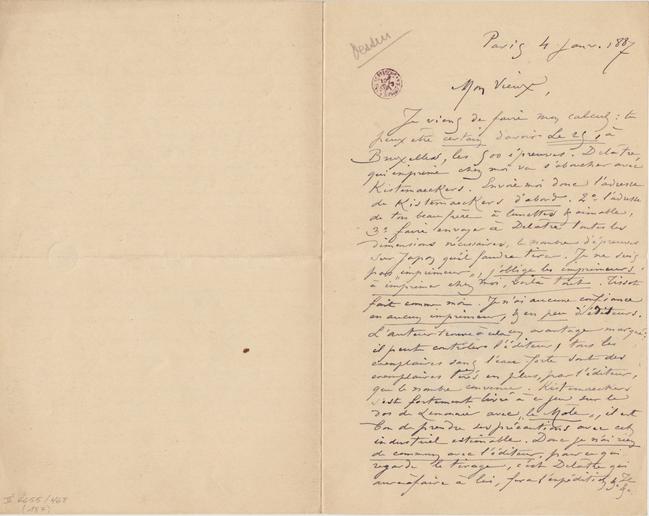 Dessin
Paris 4 Janv. 1887
Mon Vieux,
Je viens de faire mon calcul : tu
peux être certain d'avoir le 25, à
Bruxelles, les 500 épreuves. Delâtre,
qui imprime chez moi va s'aboucher avec
Kistemaeckers. Envoie moi donc l'adresse
de Kistemaeckers d'abord. 2º l'adresse
de ton beau père à lunettes & aimable,
3º faire envoyer à Delâtre toutes les
dimensions nécessaires, le nombre d'épreuves
sur Japon qu'il faudra tirer. Je ne suis
pas "imprimeur", j'oblige les imprimeurs
à imprimer chez moi, voilà tout. Tissot
fait comme moi. Je n'ai aucune confiance
en aucun imprimeur, & en peu d'éditeurs.
L'auteur trouve à cela un avantage marqué:
il peut contrôler l'éditeur, tous les
exemplaires sans l'eau forte sont des
exemplaires tirés en plus, par l'éditeur,
que le nombre convenu. Kistemaeckers
s'est fortement livré à ce jeu sur le
dos de Lemonnier avec "le Mâle", il est
bon de prendre ses précautions avec cet
industriel estimable. Donc je n'ai rien
de commun avec l'éditeur, pour ce qui
regarde le tirage, c'est Delâtre qui
aura à faire à lui, fera l'expédition &
II 6655/468
(187)